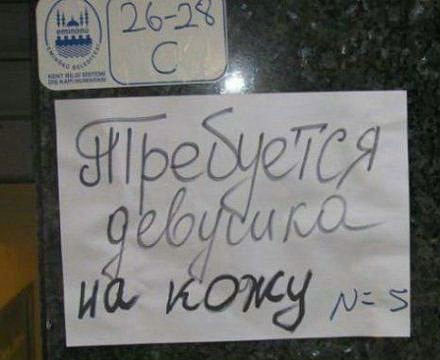 26-28
C
eminönü
EMİNÖNÜ BELEDİYESİ
KENT BİLGİ SİSTEMİ
DIŞ KAPI NUMARASI
Требуется
девушка
на кожу N=5